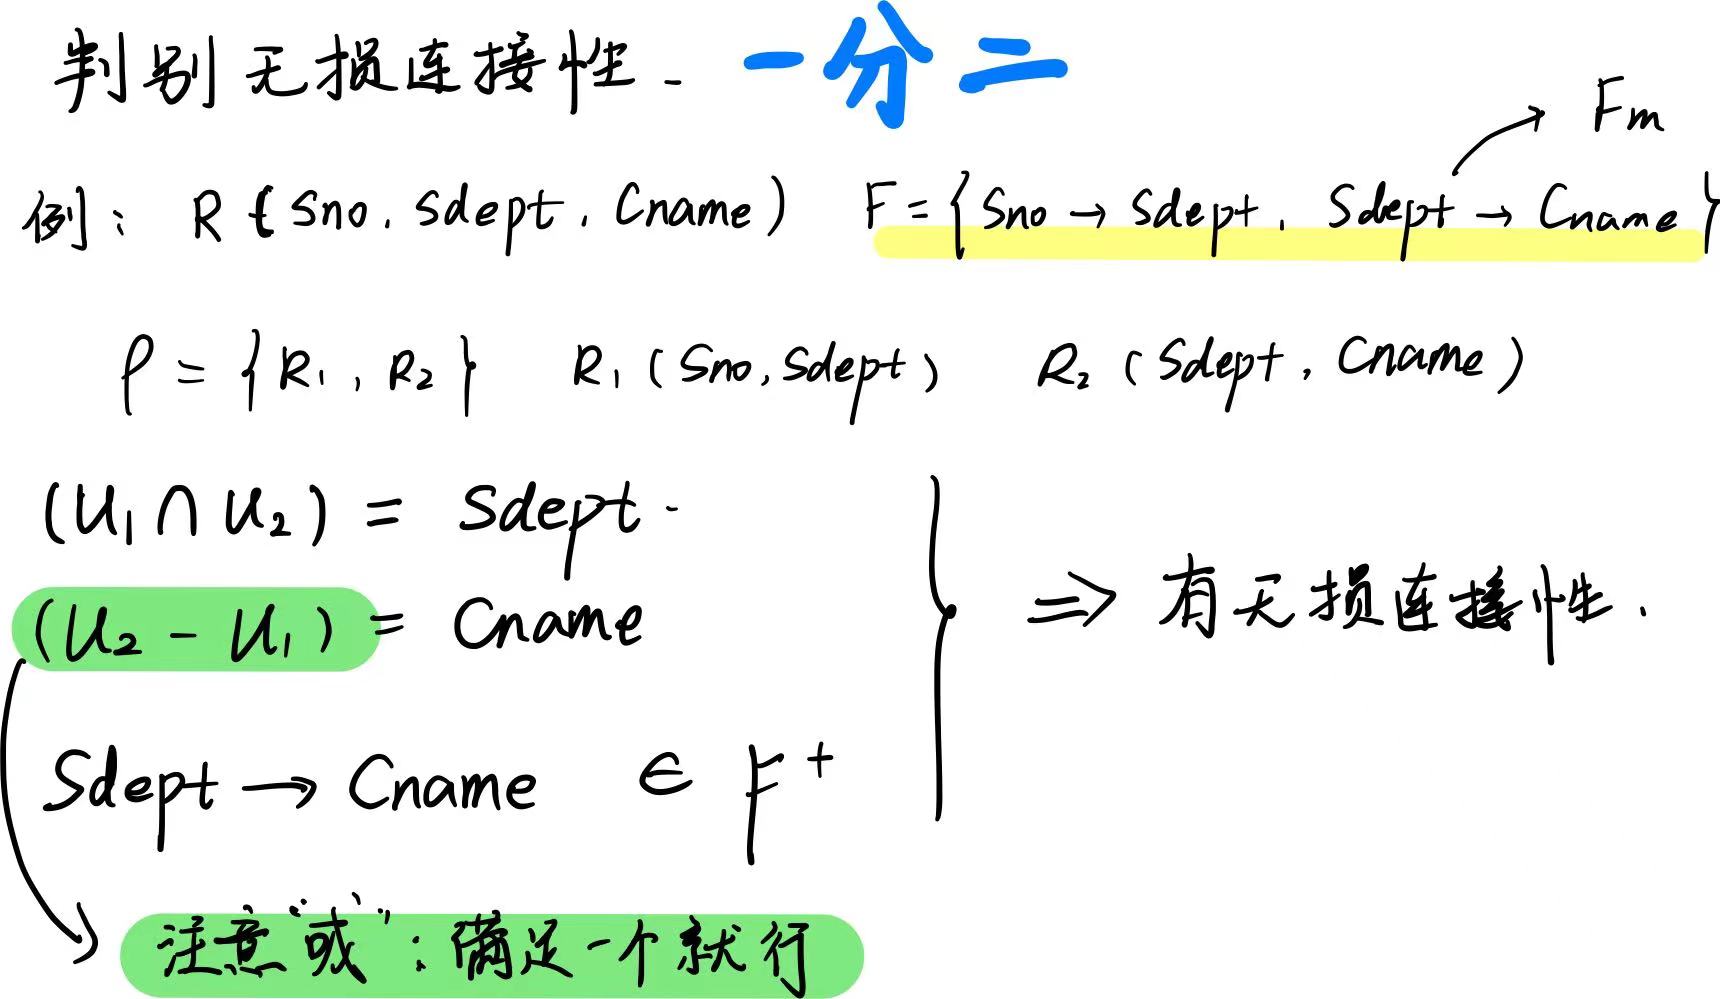 判别无损连接性- 一分二
Fm
例： R (Sno, Sdept, Cname) F = { Sno → Sdept, Sdept → Cname }
ρ = { R₁, R₂ } R₁ (Sno, Sdept) R₂ (Sdept, Cname)
(U₁ ∩ U₂) = Sdept.
(U₂ - U₁) = Cname
⇒ 有无损连接性.
Sdept → Cname ∈ F⁺
注意“或”：满足一个就行